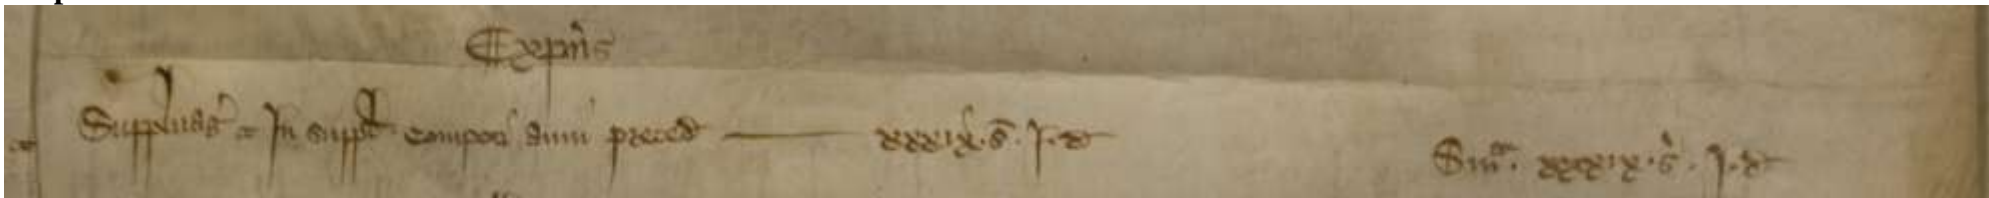 Expens
Supplusag' In suppl' compoti anni preced xxxix. s. j. d
Sma. xxxix. s. j. d